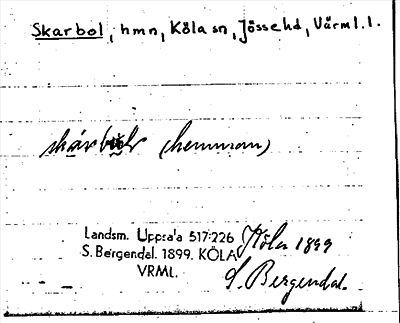 Skarbol, hmn, Köla sn, Jösse hd, Värml. l.
(hemman)
Landsm. Uppsala 517:226
S. Bergendal. 1899. KÖLA
VRML.
Köla 1899
S. Bergendal.